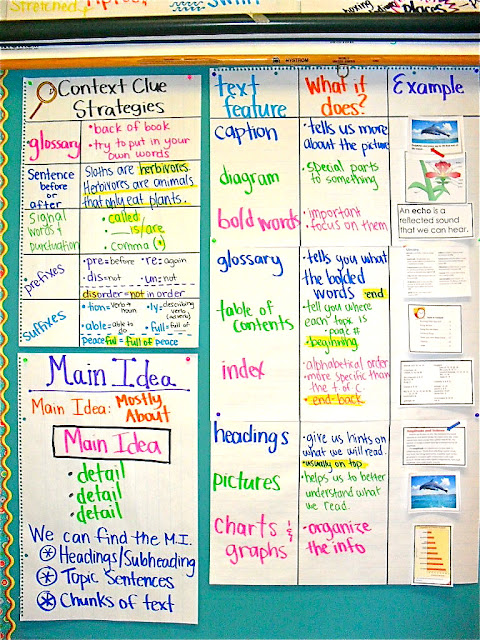 Stretched
places
HYSTROM
Context Clue
Strategies
glossary
• back of book
• try to put in your
own words
Sentence
before
or
after
Sloths are herbivores.
Herbivores are animals
that only eat plants.
Signal
words &
punctuation
• called
• is/are
• comma (,)
prefixes
• pre=before • re=again
• dis=not • un=not
disorder=not in order
suffixes
• able=able to
do
• ful=full of
peaceful=full of peace
Main Idea
Main Idea: Mostly
About
Main Idea
• detail
• detail
• detail
We can find the M.I.
Headings/Subheading
Topic Sentences
Chunks of text
text
feature
What it
does?
Example
caption
• tells us more
about the picture
diagram
• special parts
to something
bold words
• important
• focus on them
An echo is a
reflected sound
that we can hear.
glossary
• tells you what
the bolded
words end
table of
contents
• tell you where
each topic is
• page #
• beginning
index
• alphabetical order
• more specific than
the t. of c.
• end-back
headings
• give us hints on
what we will read.
• usually on top
pictures
• helps us to better
understand what
we read.
charts &
graphs
• organize
the info